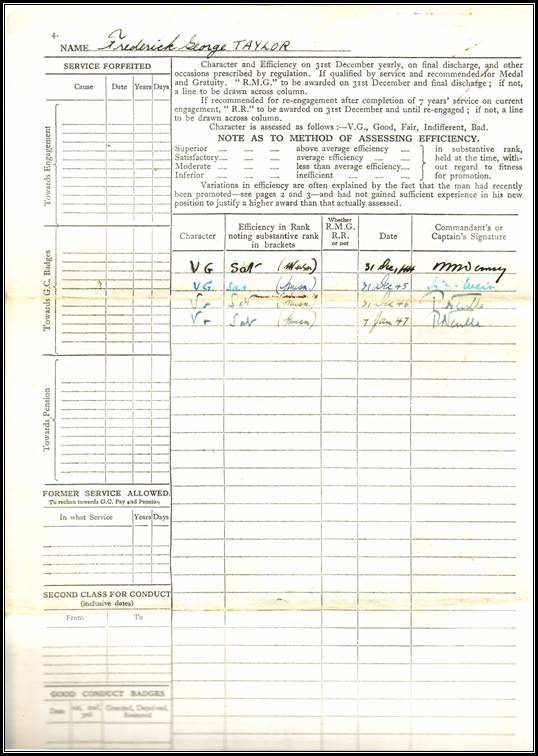 4.
NAME Frederick George TAYLOR
SERVICE FORFEITED
Cause Date Years Days
Towards Engagement
Towards G.C. Badges
Towards Pension
FORMER SERVICE ALLOWED.
To reckon towards G.C. Pay and Pension.
In what Service Years Days
SECOND CLASS FOR CONDUCT
(inclusive dates)
From To
GOOD CONDUCT BADGES
Date 1st, 2nd, 3rd Granted, Deprived, Restored
Character and Efficiency on 31st December yearly, on final discharge, and other
occasions prescribed by regulation. If qualified by service and recommended for Medal
and Gratuity. "R.M.G." to be awarded on 31st December and final discharge; if not,
a line to be drawn across column.
If recommended for re-engagement after completion of 7 years' service on current
engagement, "R.R." to be awarded on 31st December and until re-engaged; if not, a line
to be drawn across column.
Character is assessed as follows:—V.G., Good, Fair, Indifferent, Bad.
NOTE AS TO METHOD OF ASSESSING EFFICIENCY.
Superior — — above average efficiency — in substantive rank,
Satisfactory — — average efficiency — — held at the time, with-
Moderate — — less than average efficiency — out regard to fitness
Inferior — — inefficient — — — for promotion.
Variations in efficiency are often explained by the fact that the man had recently
been promoted—see pages 2 and 3—and had not gained sufficient experience in his new
position to justify a higher award than that actually assessed.
Character Efficiency in Rank noting substantive rank in brackets Whether R.M.G. R.R. or not Date Commandant's or Captain's Signature
VG Sat 31 Dec 44
VG. Sat 31 Dec 45
VG Sat 31 Dec 46
VG Sat 7 Jan 47